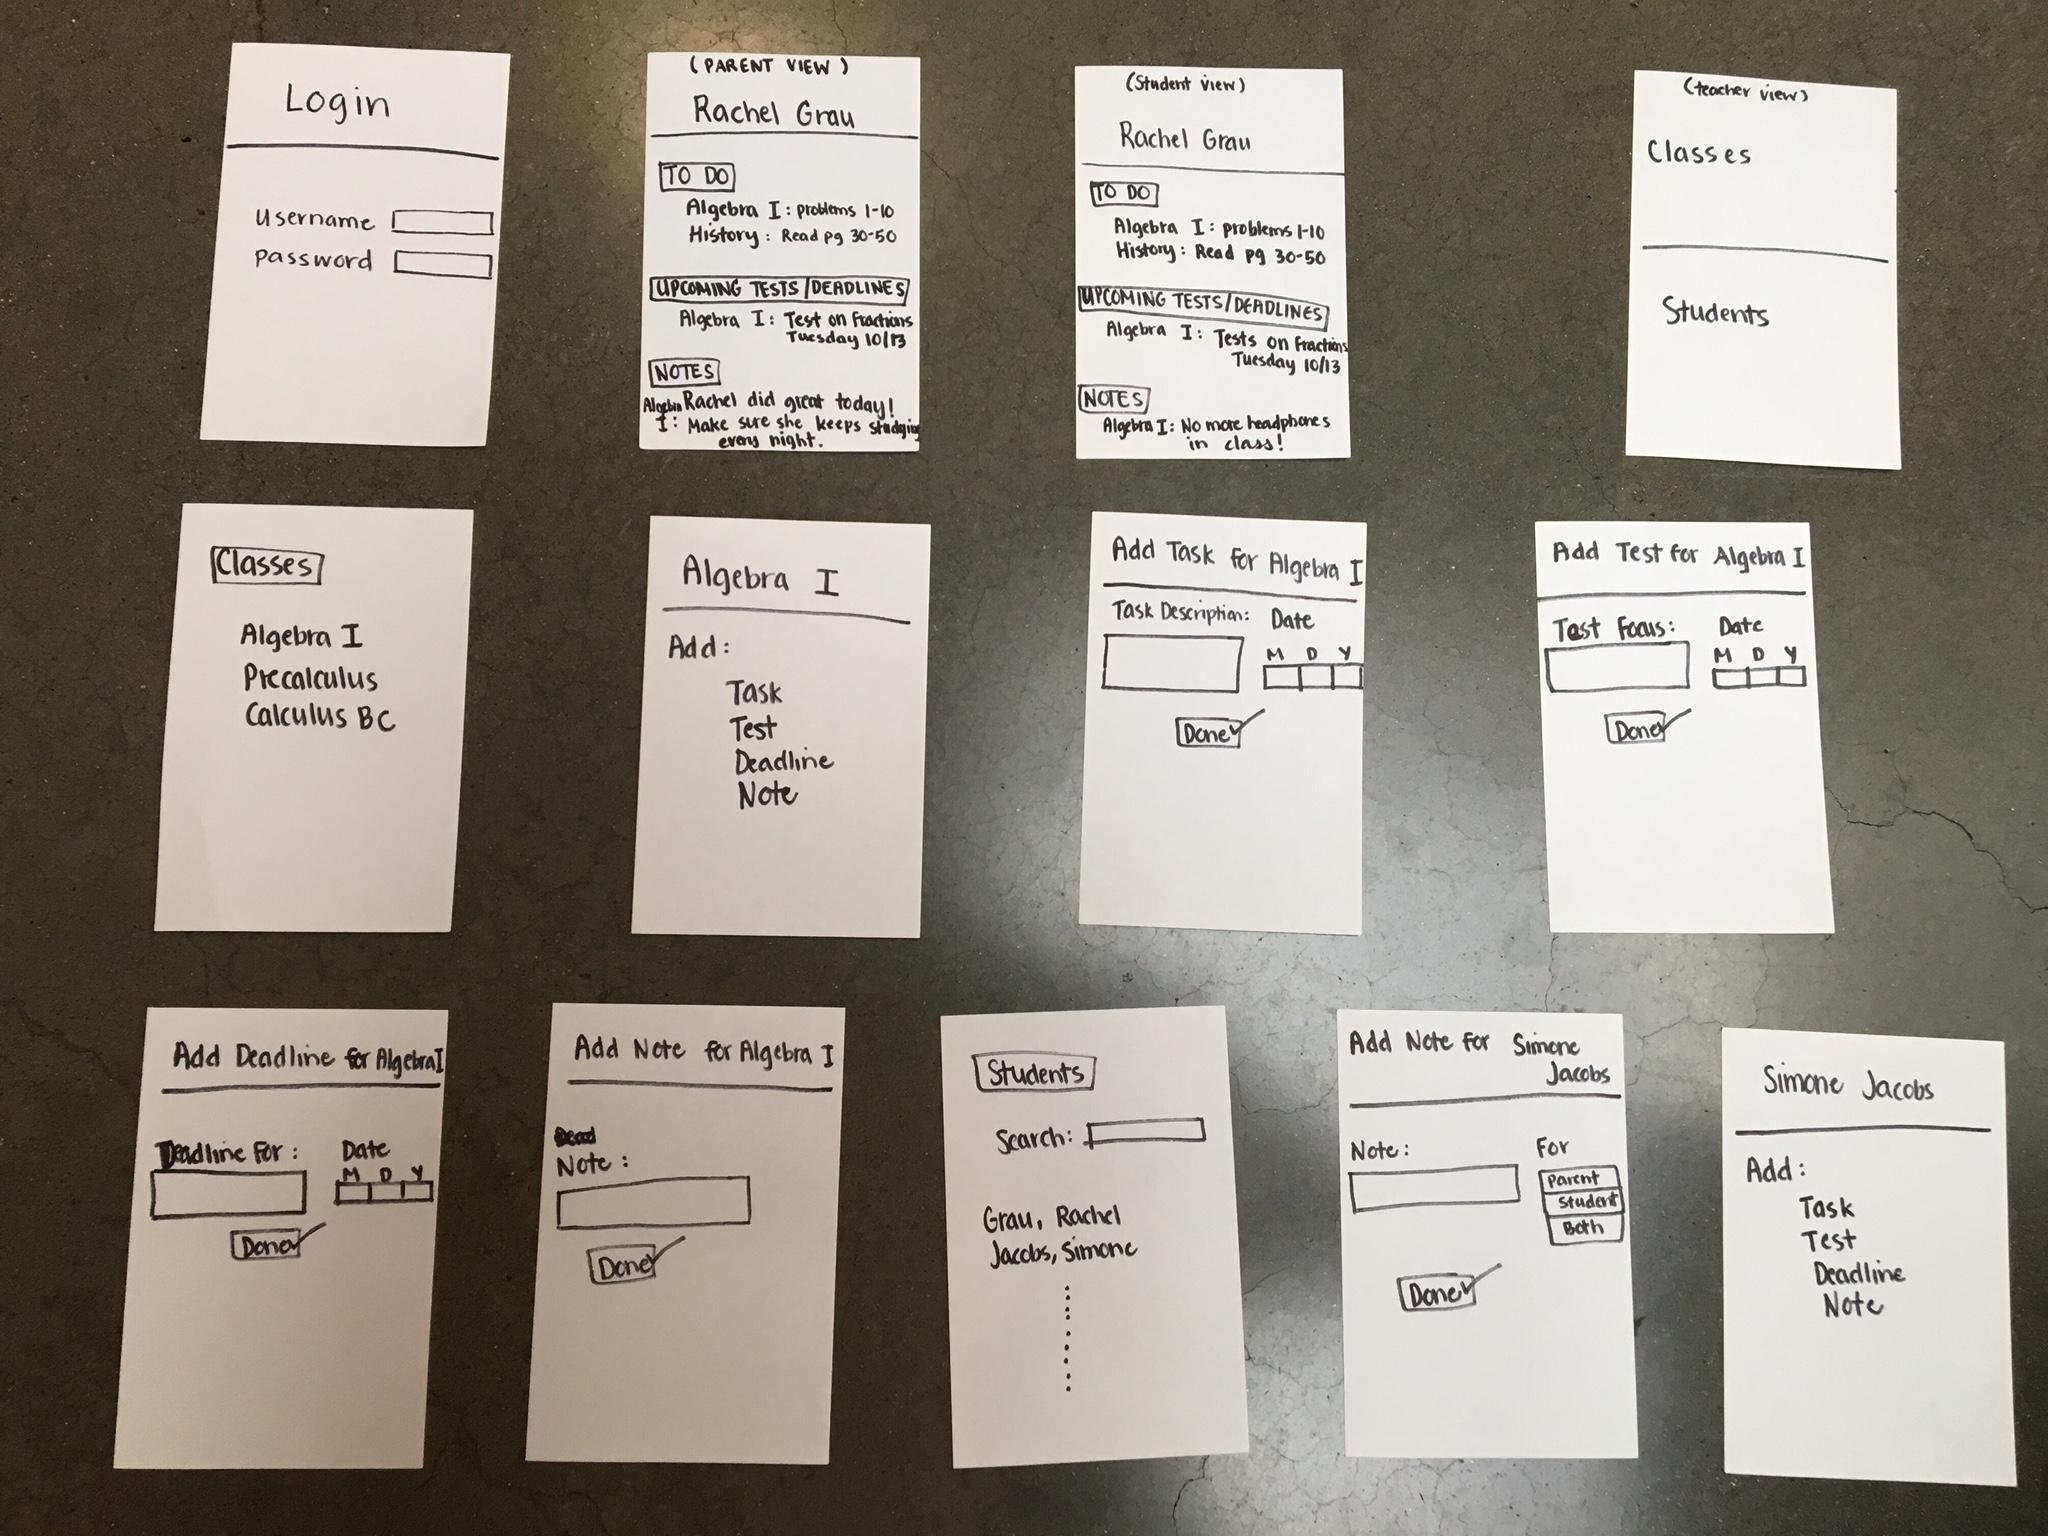 Login
username
password
(PARENT VIEW)
Rachel Grau
TO DO
Algebra I: problems 1-10
History: Read pg 30-50
UPCOMING TESTS/DEADLINES
Algebra I: Test on Fractions
Tuesday 10/13
NOTES
Algebra Rachel did great today!
I: Make sure she keeps studying
every night.
(Student view)
Rachel Grau
TO DO
Algebra I: problems 1-10
History: Read pg 30-50
UPCOMING TESTS/DEADLINES
Algebra I: Tests on Fractions
Tuesday 10/13
NOTES
Algebra I: No more headphones
in class!
(teacher view)
Classes
Students
Classes
Algebra I
Precalculus
Calculus BC
Algebra I
Add:
Task
Test
Deadline
Note
Add Task for Algebra I
Task Description: Date
M D Y
Done
Add Test for Algebra I
Test Focus: Date
M D Y
Done
Add Deadline for Algebra I
Deadline For: Date
M D Y
Done
Add Note for Algebra I
Dead
Note:
Done
Students
Search:
Grau, Rachel
Jacobs, Simone
Add Note for Simone
Jacobs
Note: For
Parent
Student
Both
Done
Simone Jacobs
Add:
Task
Test
Deadline
Note